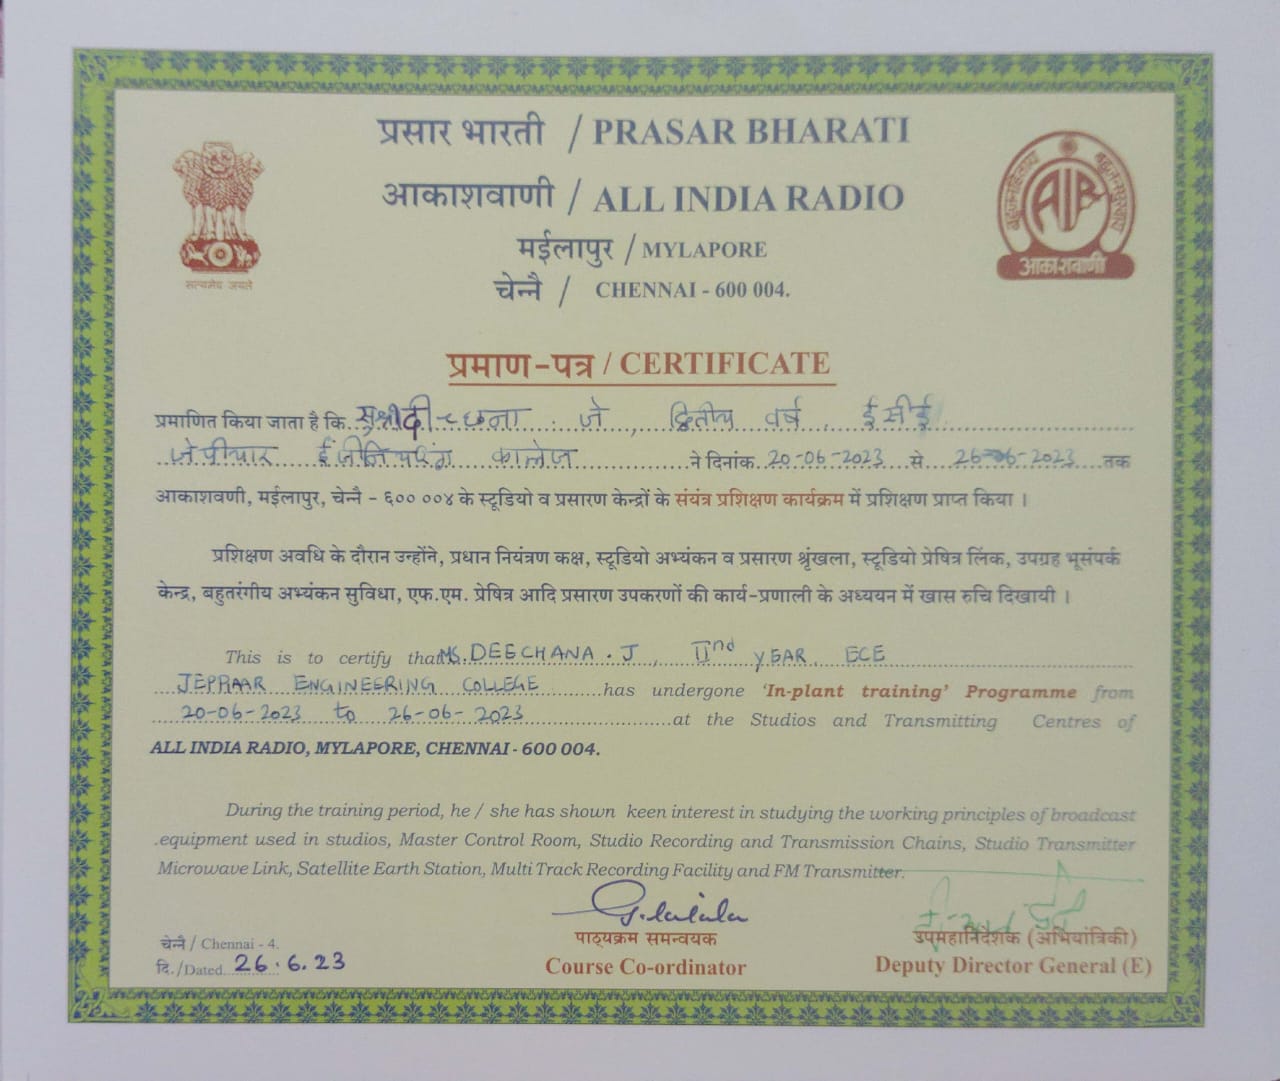 प्रसार भारती / PRASAR BHARATI
आकाशवाणी / ALL INDIA RADIO
मईलापुर / MYLAPORE
चेन्नै / CHENNAI - 600 004.
सत्यमेव जयते
बहुजनहिताय बहुजनसुखाय
AIR
आकाशवाणी
प्रमाण-पत्र / CERTIFICATE
प्रमाणित किया जाता है कि सुश्री दीच्छना . जे , द्वितीय वर्ष ईसीई
जेपीयार इंजीनियरिंग कालेज ने दिनांक 20-06-2023 से 26-06-2023 तक
आकाशवाणी, मईलापुर, चेन्नै - ६०० ००४ के स्टूडियो व प्रसारण केन्द्रों के संयंत्र प्रशिक्षण कार्यक्रम में प्रशिक्षण प्राप्त किया ।
प्रशिक्षण अवधि के दौरान उन्होंने, प्रधान नियंत्रण कक्ष, स्टूडियो अभ्यंकन व प्रसारण श्रृंखला, स्टूडियो प्रेषित्र लिंक, उपग्रह भूसंपर्क
केन्द्र, बहुतरंगीय अभ्यंकन सुविधा, एफ.एम. प्रेषित्र आदि प्रसारण उपकरणों की कार्य-प्रणाली के अध्ययन में खास रुचि दिखायी ।
This is to certify that MS. DEECHANA . J , IInd YEAR ECE
JEPPIAAR ENGINEERING COLLEGE has undergone 'In-plant training' Programme from
20-06-2023 to 26-06-2023 at the Studios and Transmitting Centres of
ALL INDIA RADIO, MYLAPORE, CHENNAI - 600 004.
During the training period, he / she has shown keen interest in studying the working principles of broadcast
equipment used in studios, Master Control Room, Studio Recording and Transmission Chains, Studio Transmitter
Microwave Link, Satellite Earth Station, Multi Track Recording Facility and FM Transmitter.
चेन्नै / Chennai - 4.
दि./Dated 26.6.23
पाठ्यक्रम समन्वयक
Course Co-ordinator
उपमहानिदेशक (अभियांत्रिकी)
Deputy Director General (E)